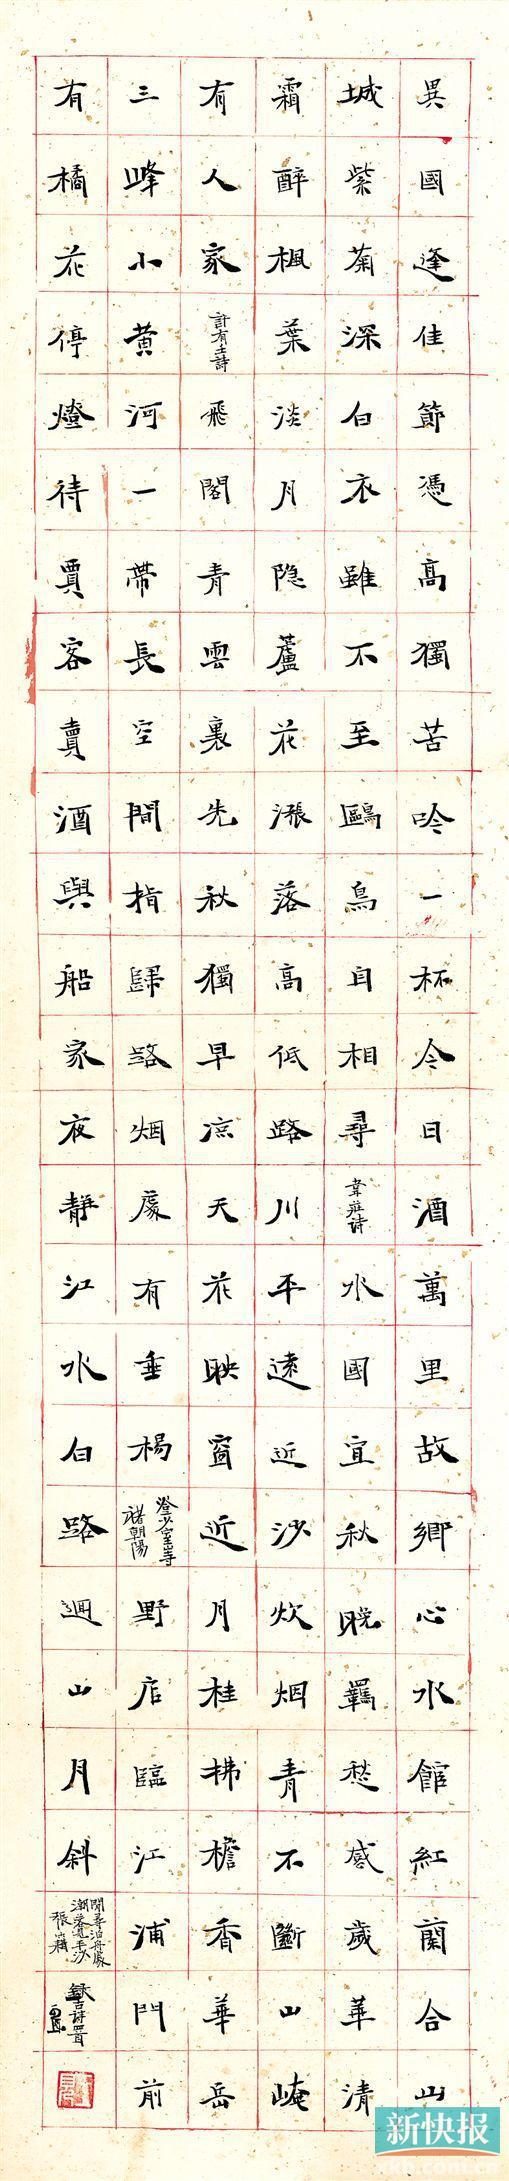 異國逢佳節憑高獨苦吟一杯今日酒萬里故鄉心水館紅蘭合山
城紫菊深白衣雖不至鷗鳥自相尋韋莊詩水國宜秋晚羈愁感歲華清
霜醉楓葉淡月隐蘆花漲落高低路川平遠近沙炊烟青不斷山崦
有人家許有壬詩飛閣青雲裏先秋獨早凉天花映窗近月桂拂檐香華岳
三峰小黄河一帶長空間指歸路烟處有垂楊登少室寺褚朝陽野店臨江浦門前
有橘花停燈待賈客賣酒與船家夜靜江水白路迴山月斜閒尋泊舟處潮落見平沙張籍
錄古詩四首
新快报
xkb.com.cn